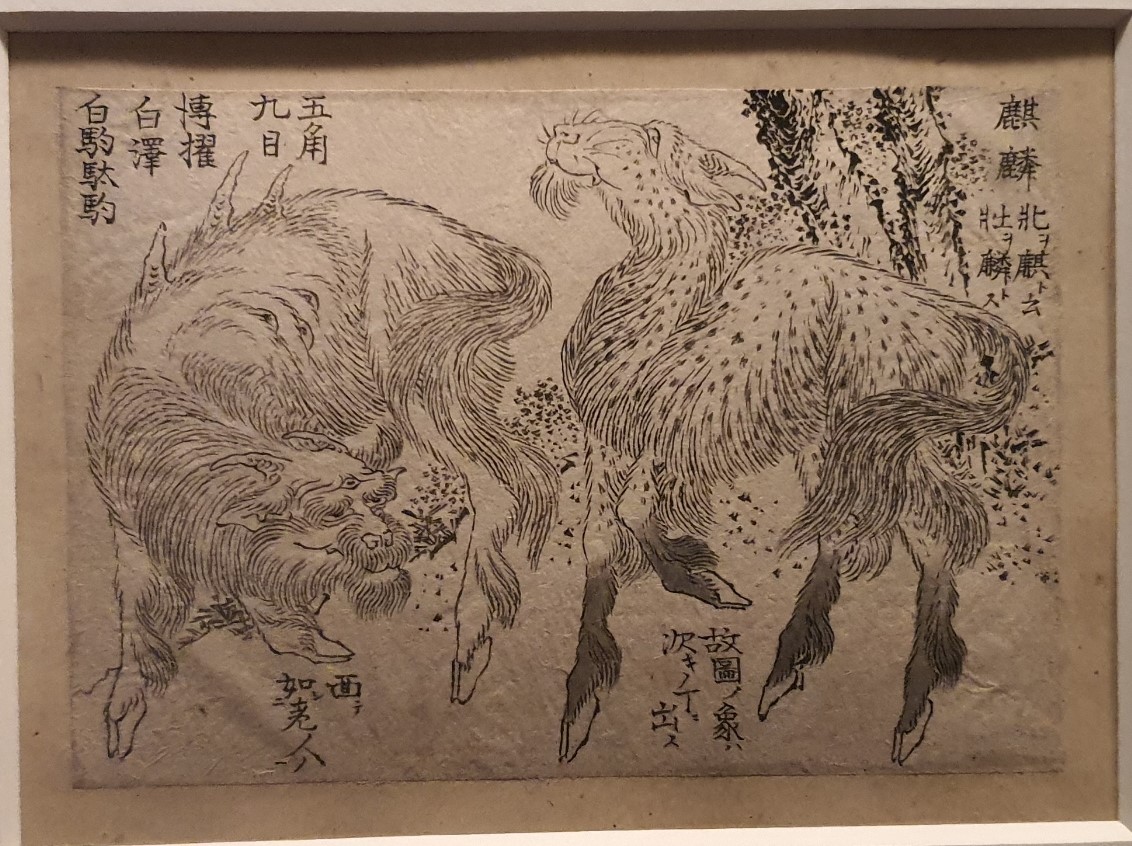 麒麟
牝ヲ麒ト云
牡ヲ麟トス
五角
九目
博擢
白澤
白駒駄駒
故圖ノ象ハ
次キノ丁ニ
出ス
面テ
如シ老人ノ